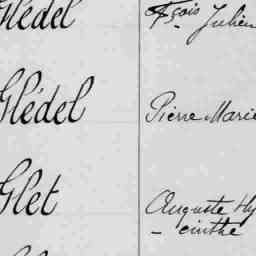 Glédel fçois Julien
Glédel Pierre Marie
Glet Auguste Hy
- cinthe